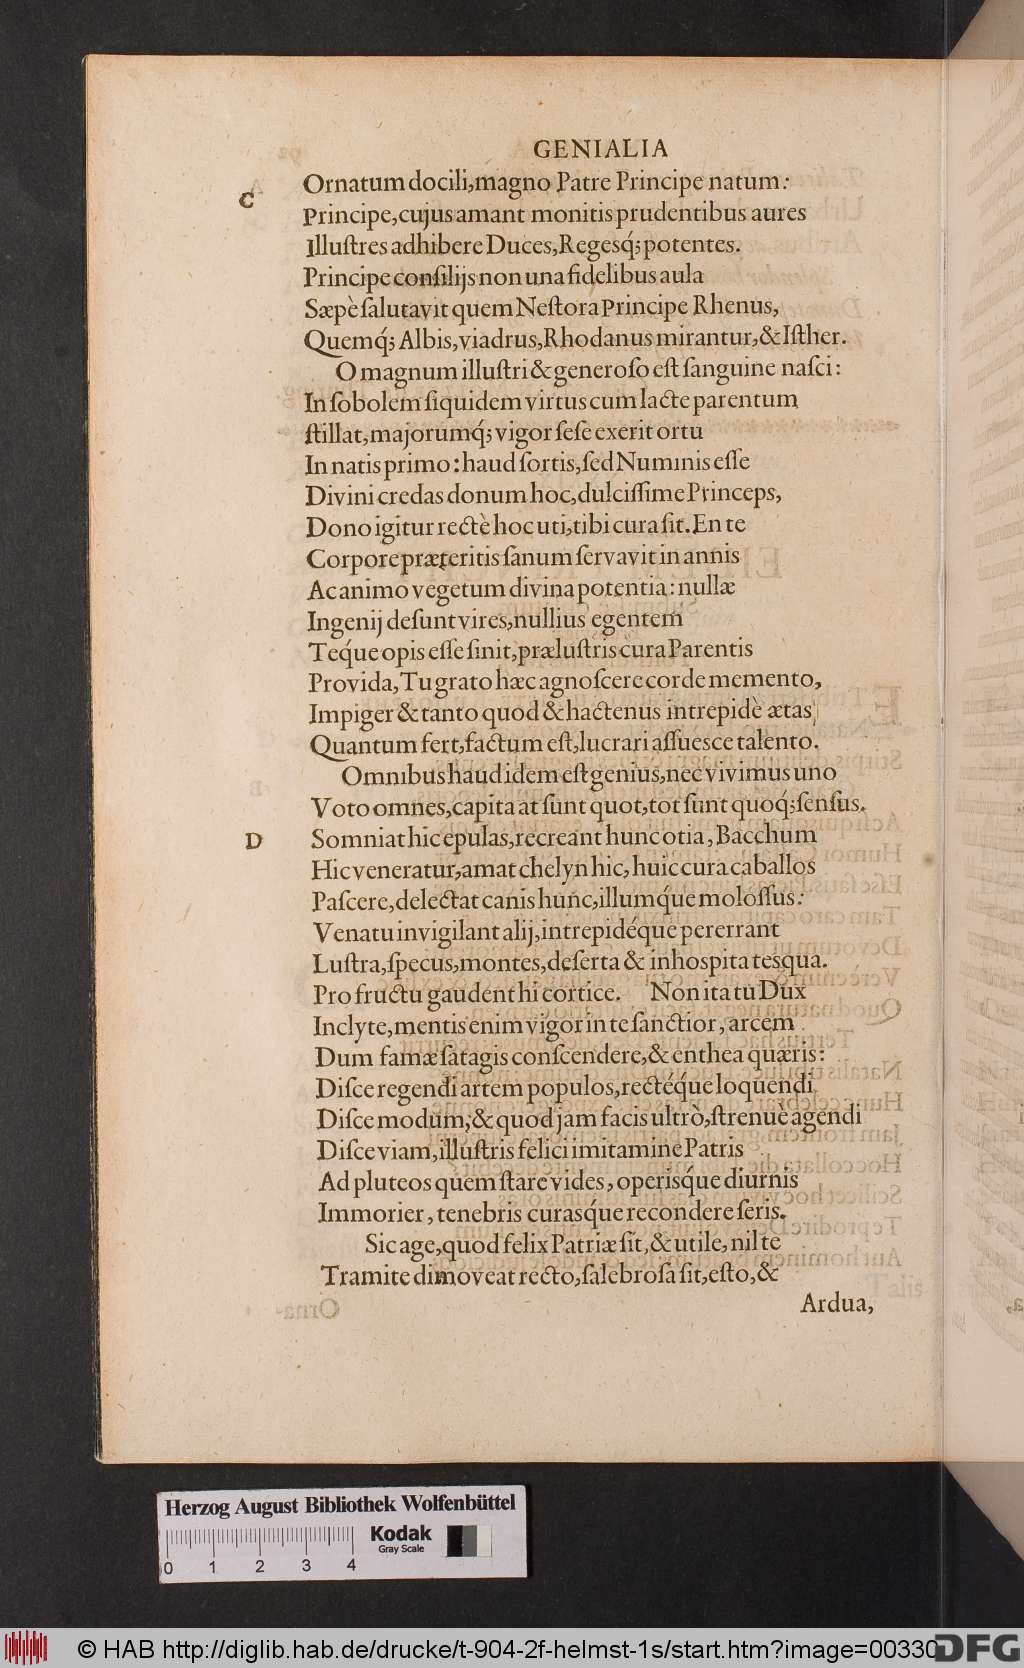 GENIALIA
C
Ornatum docili, magno Patre Principe natum:
Principe, cujus amant monitis prudentibus aures
Illuſtres adhibere Duces, Regesq́; potentes.
Principe conſilijs non una fidelibus aula
Sæpè ſalutavit quem Neſtora Principe Rhenus,
Quemq́; Albis, viadrus, Rhodanus mirantur, & Iſther.
O magnum illuſtri & generoſo eſt ſanguine naſci:
In ſobolem ſiquidem virtus cum lacte parentum
ſtillat, majorumq́; vigor ſeſe exerit ortu
In natis primo: haud ſortis, ſed Numinis eſſe
Divini credas donum hoc, dulciſſime Princeps,
Dono igitur rectè hoc uti, tibi cura ſit. En te
Corpore præteritis ſanum ſervavit in annis
Ac animo vegetum divina potentia: nullæ
Ingenij deſunt vires, nullius egentem
Teq́ue opis eſſe ſinit, præluſtris cura Parentis
Provida, Tu grato hæc agnoſcere corde memento,
Impiger & tanto quod & hactenus intrepidè ætas
Quantum fert, factum eſt, lucrari aſſueſce talento.
Omnibus haud idem eſt genius, nec vivimus uno
Voto omnes, capita at ſunt quot, tot ſunt quoq́; ſenſus.
D
Somniat hic epulas, recreant hunc otia, Bacchum
Hic veneratur, amat chelyn hic, huic cura caballos
Paſcere, delectat canis hunc, illumq́ue moloſſus:
Venatu invigilant alij, intrepidéque pererrant
Luſtra, ſpecus, montes, deſerta & inhoſpita tesqua.
Pro fructu gaudent hi cortice. Non ita tu Dux
Inclyte, mentis enim vigor in te ſanctior, arcem
Dum famæ ſatagis conſcendere, & enthea quæris:
Diſce regendi artem populos, rectéq́ue loquendi
Diſce modum, & quod jam facis ultrò, ſtrenuè agendi
Diſce viam, illuſtris felici imitamine Patris
Ad pluteos quem ſtare vides, operisq́ue diurnis
Immorier, tenebris curasq́ue recondere ſeris.
Sic age, quod felix Patriæ ſit, & utile, nil te
Tramite dimoveat recto, ſalebroſa ſit, eſto, &
Ardua,
Herzog August Bibliothek Wolfenbüttel
Kodak
Gray Scale
0 1 2 3 4
© HAB http://diglib.hab.de/drucke/t-904-2f-helmst-1s/start.htm?image=00330
DFG